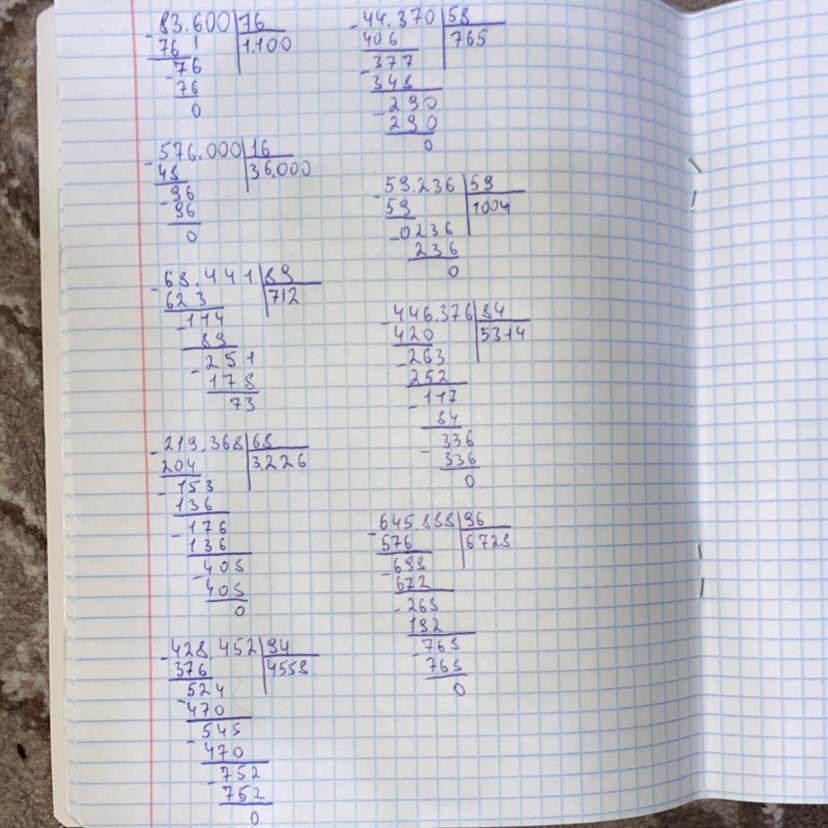 83.600 76
- 76 1 1.100
- 76
76
0
- 576.000 16
48 36.000
- 96
96
0
- 63.441 89
623 712
- 114
89
- 251
178
73
- 219.368 68
204 3.226
- 153
136
- 176
136
- 408
408
0
- 428.452 94
376 4558
- 524
470
- 545
470
- 752
752
0
- 44.370 58
406 765
- 377
348
- 290
290
0
- 59.236 59
59 1004
- 0236
236
0
- 446.376 84
420 5314
- 263
252
- 117
84
- 336
336
0
- 645.888 96
576 6728
- 698
672
- 268
192
- 768
768
0